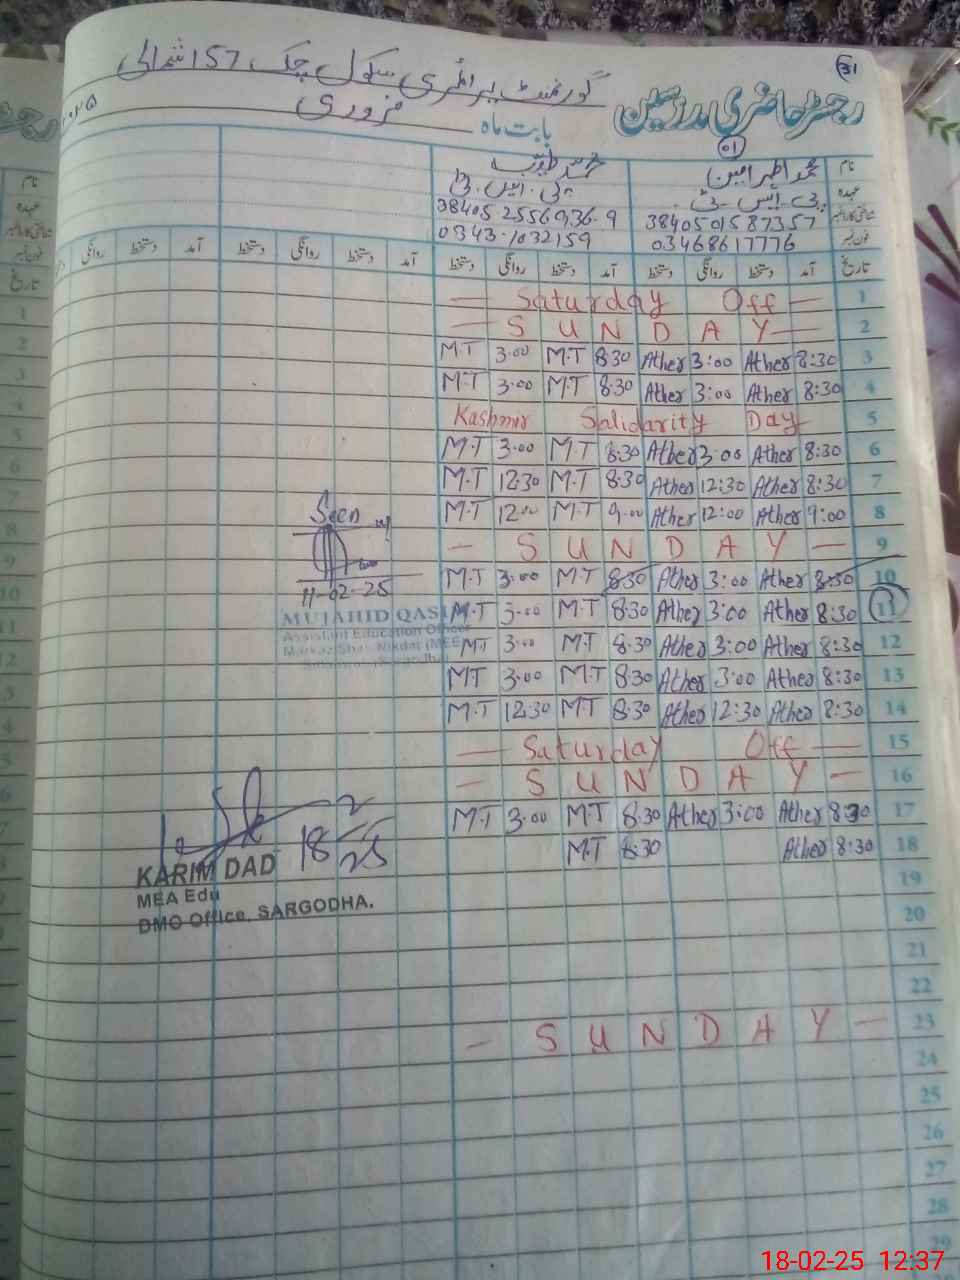 31
رجسٹر حاضری مدرسین گورنمنٹ پرائمری سکول چک 157 شمالی
01 بابت ماہ فروری ۲۰۲۵
نام محمد اطہر امین محمد طیب
عہدہ پی۔ایس۔ٹی۔ پی۔ایس۔ٹی
شناختی کارڈ نمبر 3840501587357 38405 2556936-9
فون نمبر 03468617776 0343-1032159
تاریخ آمد دستخط روانگی دستخط آمد دستخط روانگی دستخط آمد دستخط روانگی دستخط آمد دستخط روانگی
— Saturday Off — 1
— S U N D A Y — 2
M.T 3.00 M.T 8.30 Ather 3:00 Ather 8:30 3
M.T 3.00 M.T 8.30 Ather 3:00 Ather 8:30 4
Kashmir Salidarity Day 5
M.T 3.00 M.T 8.30 Ather 3:00 Ather 8:30 6
M.T 12.30 M.T 8.30 Ather 12:30 Ather 8:30 7
M.T 12.00 M.T 9.00 Ather 12:00 Ather 9:00 8
— S U N D A Y — 9
M.T 3.00 M.T 8.30 Ather 3:00 Ather 8:30 10
M.T 3.00 M.T 8.30 Ather 3:00 Ather 8:30 11
M.T 3.00 M.T 8.30 Ather 3:00 Ather 8:30 12
M.T 3.00 M.T 8.30 Ather 3:00 Ather 8:30 13
M.T 12.30 M.T 8.30 Ather 12:30 Ather 8:30 14
— Saturday Off — 15
— S U N D A Y — 16
M.T 3.00 M.T 8.30 Ather 3:00 Ather 8:30 17
M.T 8.30 Ather 8:30 18
19
20
21
22
— S U N D A Y — 23
24
25
26
27
28
29
Seen
11-02-25
MUJAHID QASIM
Assistant Education Officer
18/2/25
KARIM DAD
MEA Edu
DMO Office, SARGODHA.
18-02-25 12:37